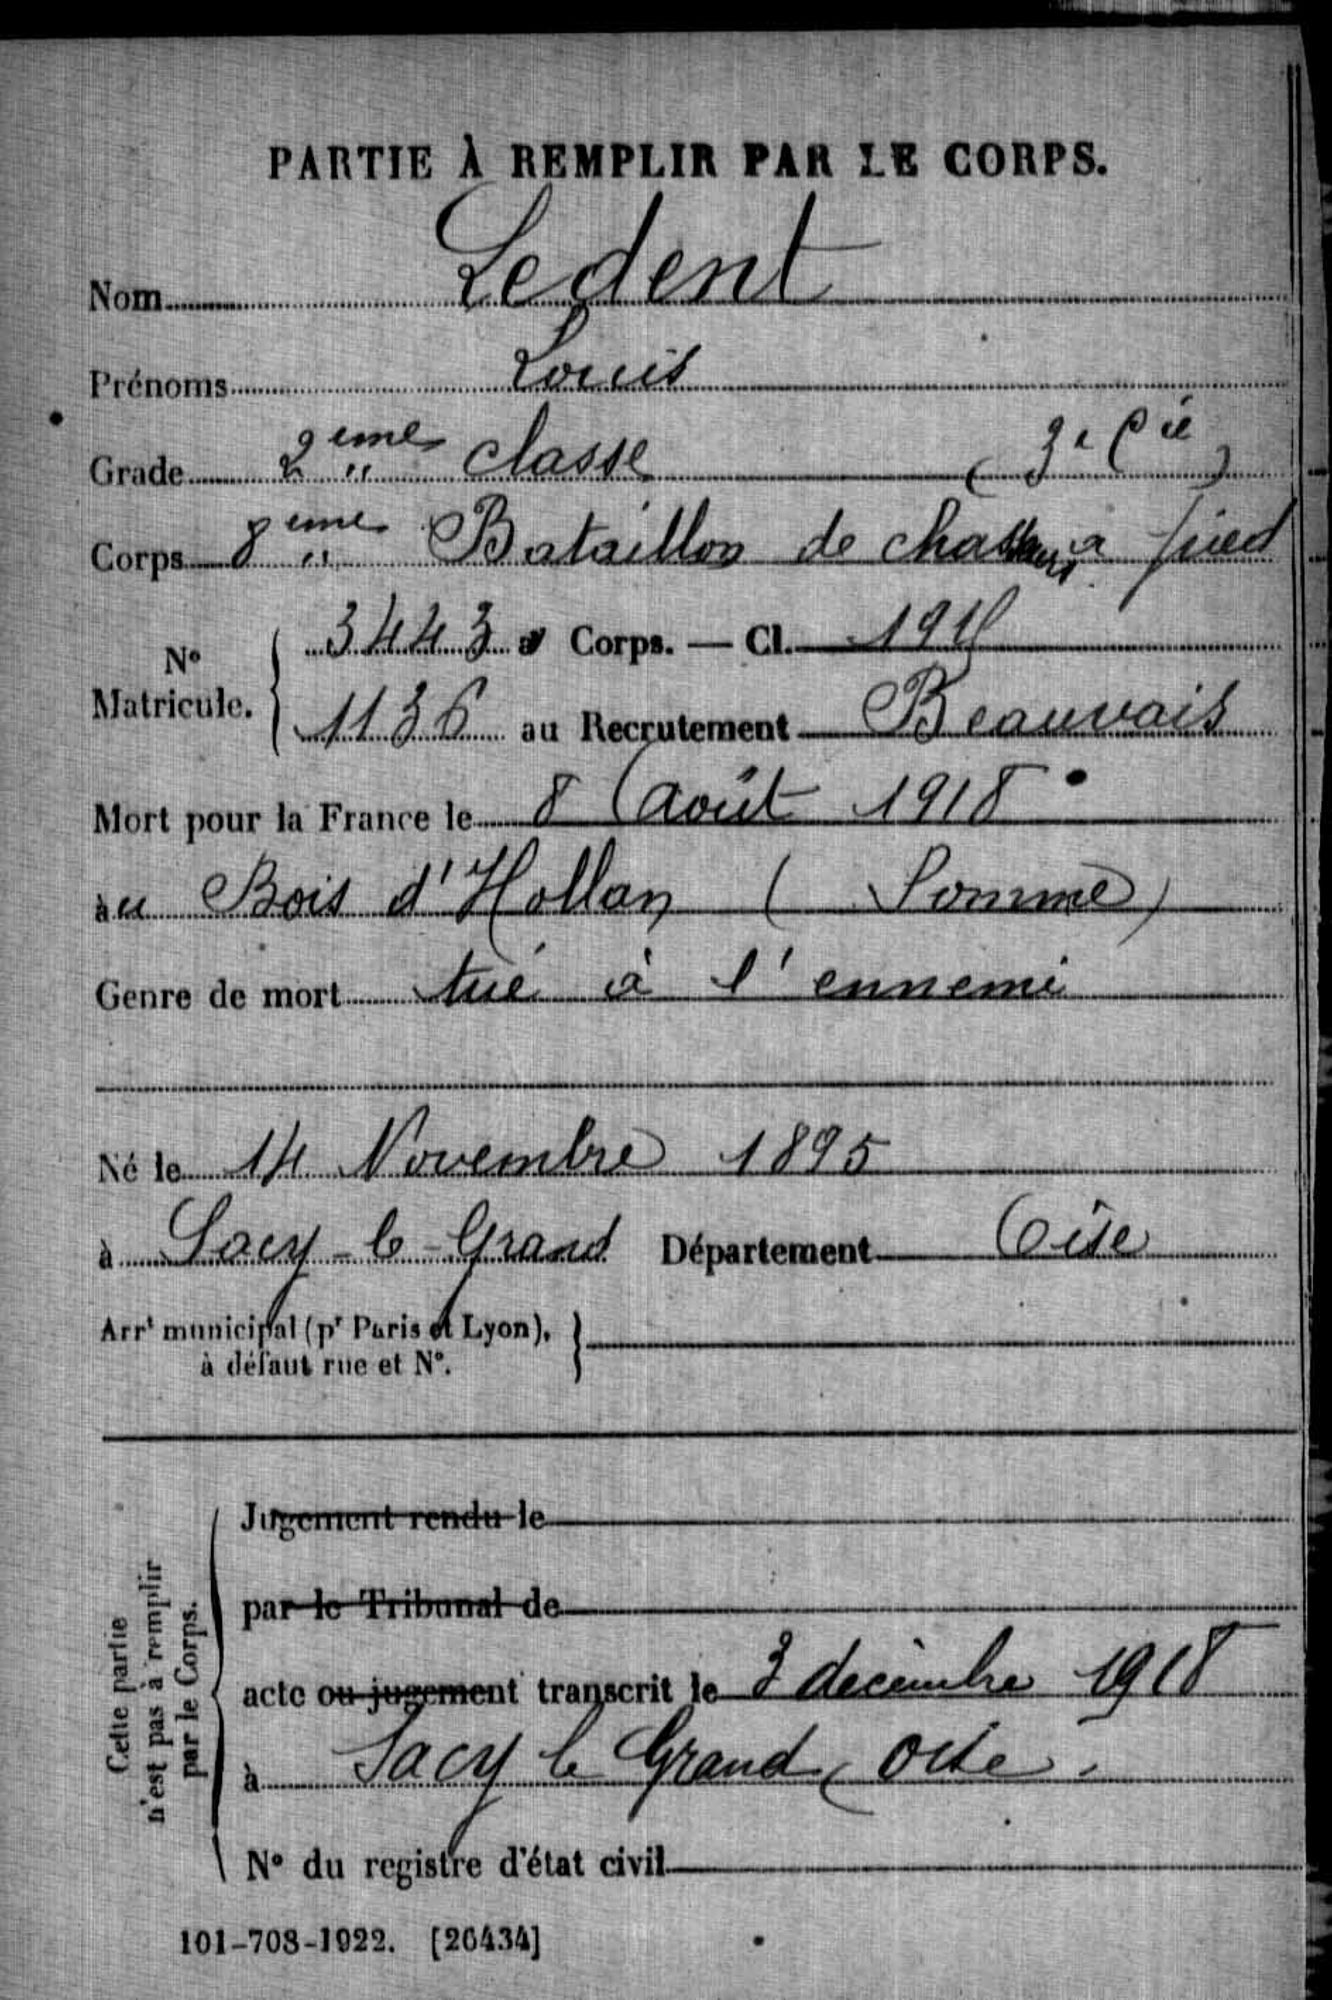 PARTIE À REMPLIR PAR LE CORPS.
Nom Ledent
Prénoms Louis
Grade 2ème classe (3e Cie)
Corps 8ème Bataillon de chasseurs à pied
N° Matricule. 3443 au Corps. — Cl.
1136 au Recrutement Beauvais
Mort pour la France le 8 Août 1918
au Bois d'Hollan (Somme)
Genre de mort tué à l'ennemi
Né le 14 Novembre 1895
à Sacy-le-Grand Département Oise
Arrt municipal (pr Paris et Lyon),
à défaut rue et N°.
Cette partie
n'est pas à remplir
par le Corps.
Jugement rendu le
par le Tribunal de
acte ou jugement transcrit le 3 décembre 1918
à Sacy le Grand, Oise.
N° du registre d'état civil
101-708-1922. [26434]